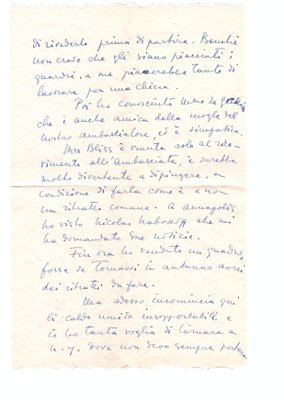 di rivederlo prima di partire. Benchè
non credo che gli siano piacciuti i
quardri, a me piacerebbe tanto di
lavorare per una chiesa.
Poi ho conosciuto
che è anche amica della moglie del
nostro ambasciatore, ed è simpatica.
Mrs Bliss è venuta solo al rice-
vimento all'ambasciata, e sarebbe
molto divertente a dipingere, a
condizione di farla come è e non
un ritratto comune. A Annapolis
ho visto Nicolas Nabokoff che mi
ha domandato sue notizie.
Fin ora ho venduto un quadro,
forse se tornassi in autunno avrei
dei ritratti da fare.
Ma adesso incomincia qui
il caldo umido insopportabile e
io ho tanta voglia di tornare a
N.Y. dove non devo sempre portare